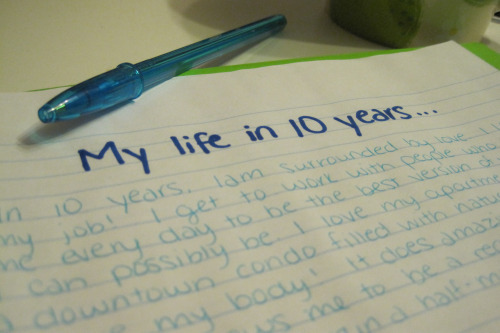 My life in 10 years...
in 10 years, I am surrounded by love. I
my job! I get to work with people who
me every day to be the best version of
I can possibly be. I love my apartment
downtown condo filled with natu
my body! It does amaz
me to be a re
in a half-m